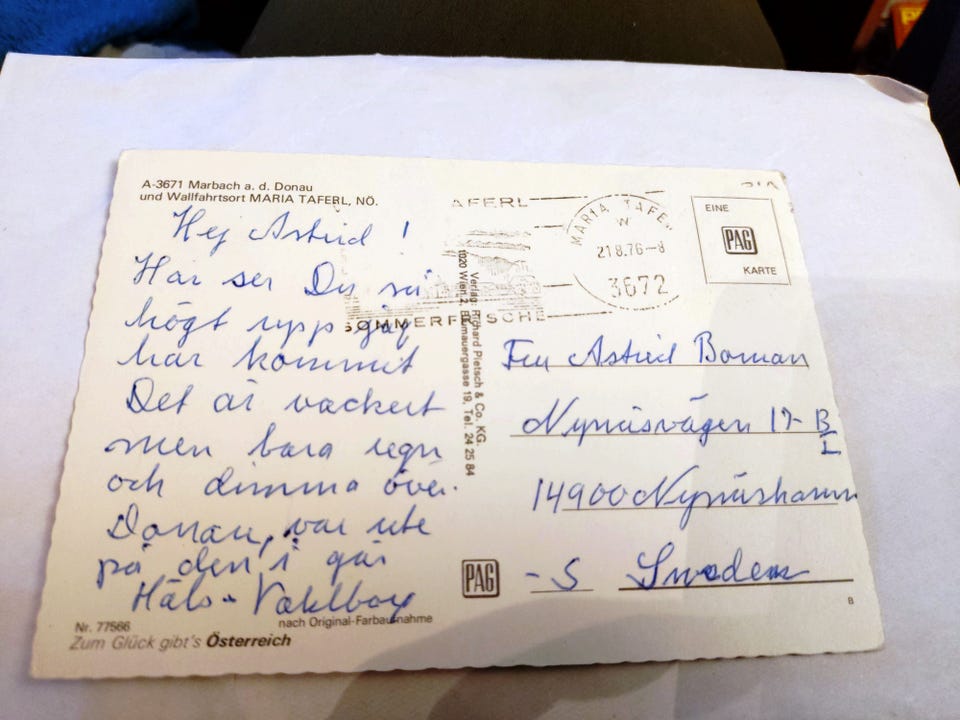 A-3671 Marbach a. d. Donau
und Wallfahrtsort MARIA TAFERL, NÖ.
Hej Astrid !
Här ser Du så
högt upp jag
har kommit
Det är vackert
men bara regn
och dimma över
Donau, var ute
på den i går
Häls.
Nr. 77566
nach Original-Farbaufnahme
Zum Glück gibt's Österreich
Verlag: Richard Pietsch & Co. KG.
1020 Wien 2, Blumauergasse 19, Tel. 24 25 84
AFERL
SOMMERFRISCHE
MARIA TAFERL
21.8.76-8
3672
EINE
PAG
KARTE
Astrid Boman
Nynäsvägen 17 B
14900 Nynäshamn
PAG
- S Sweden
B